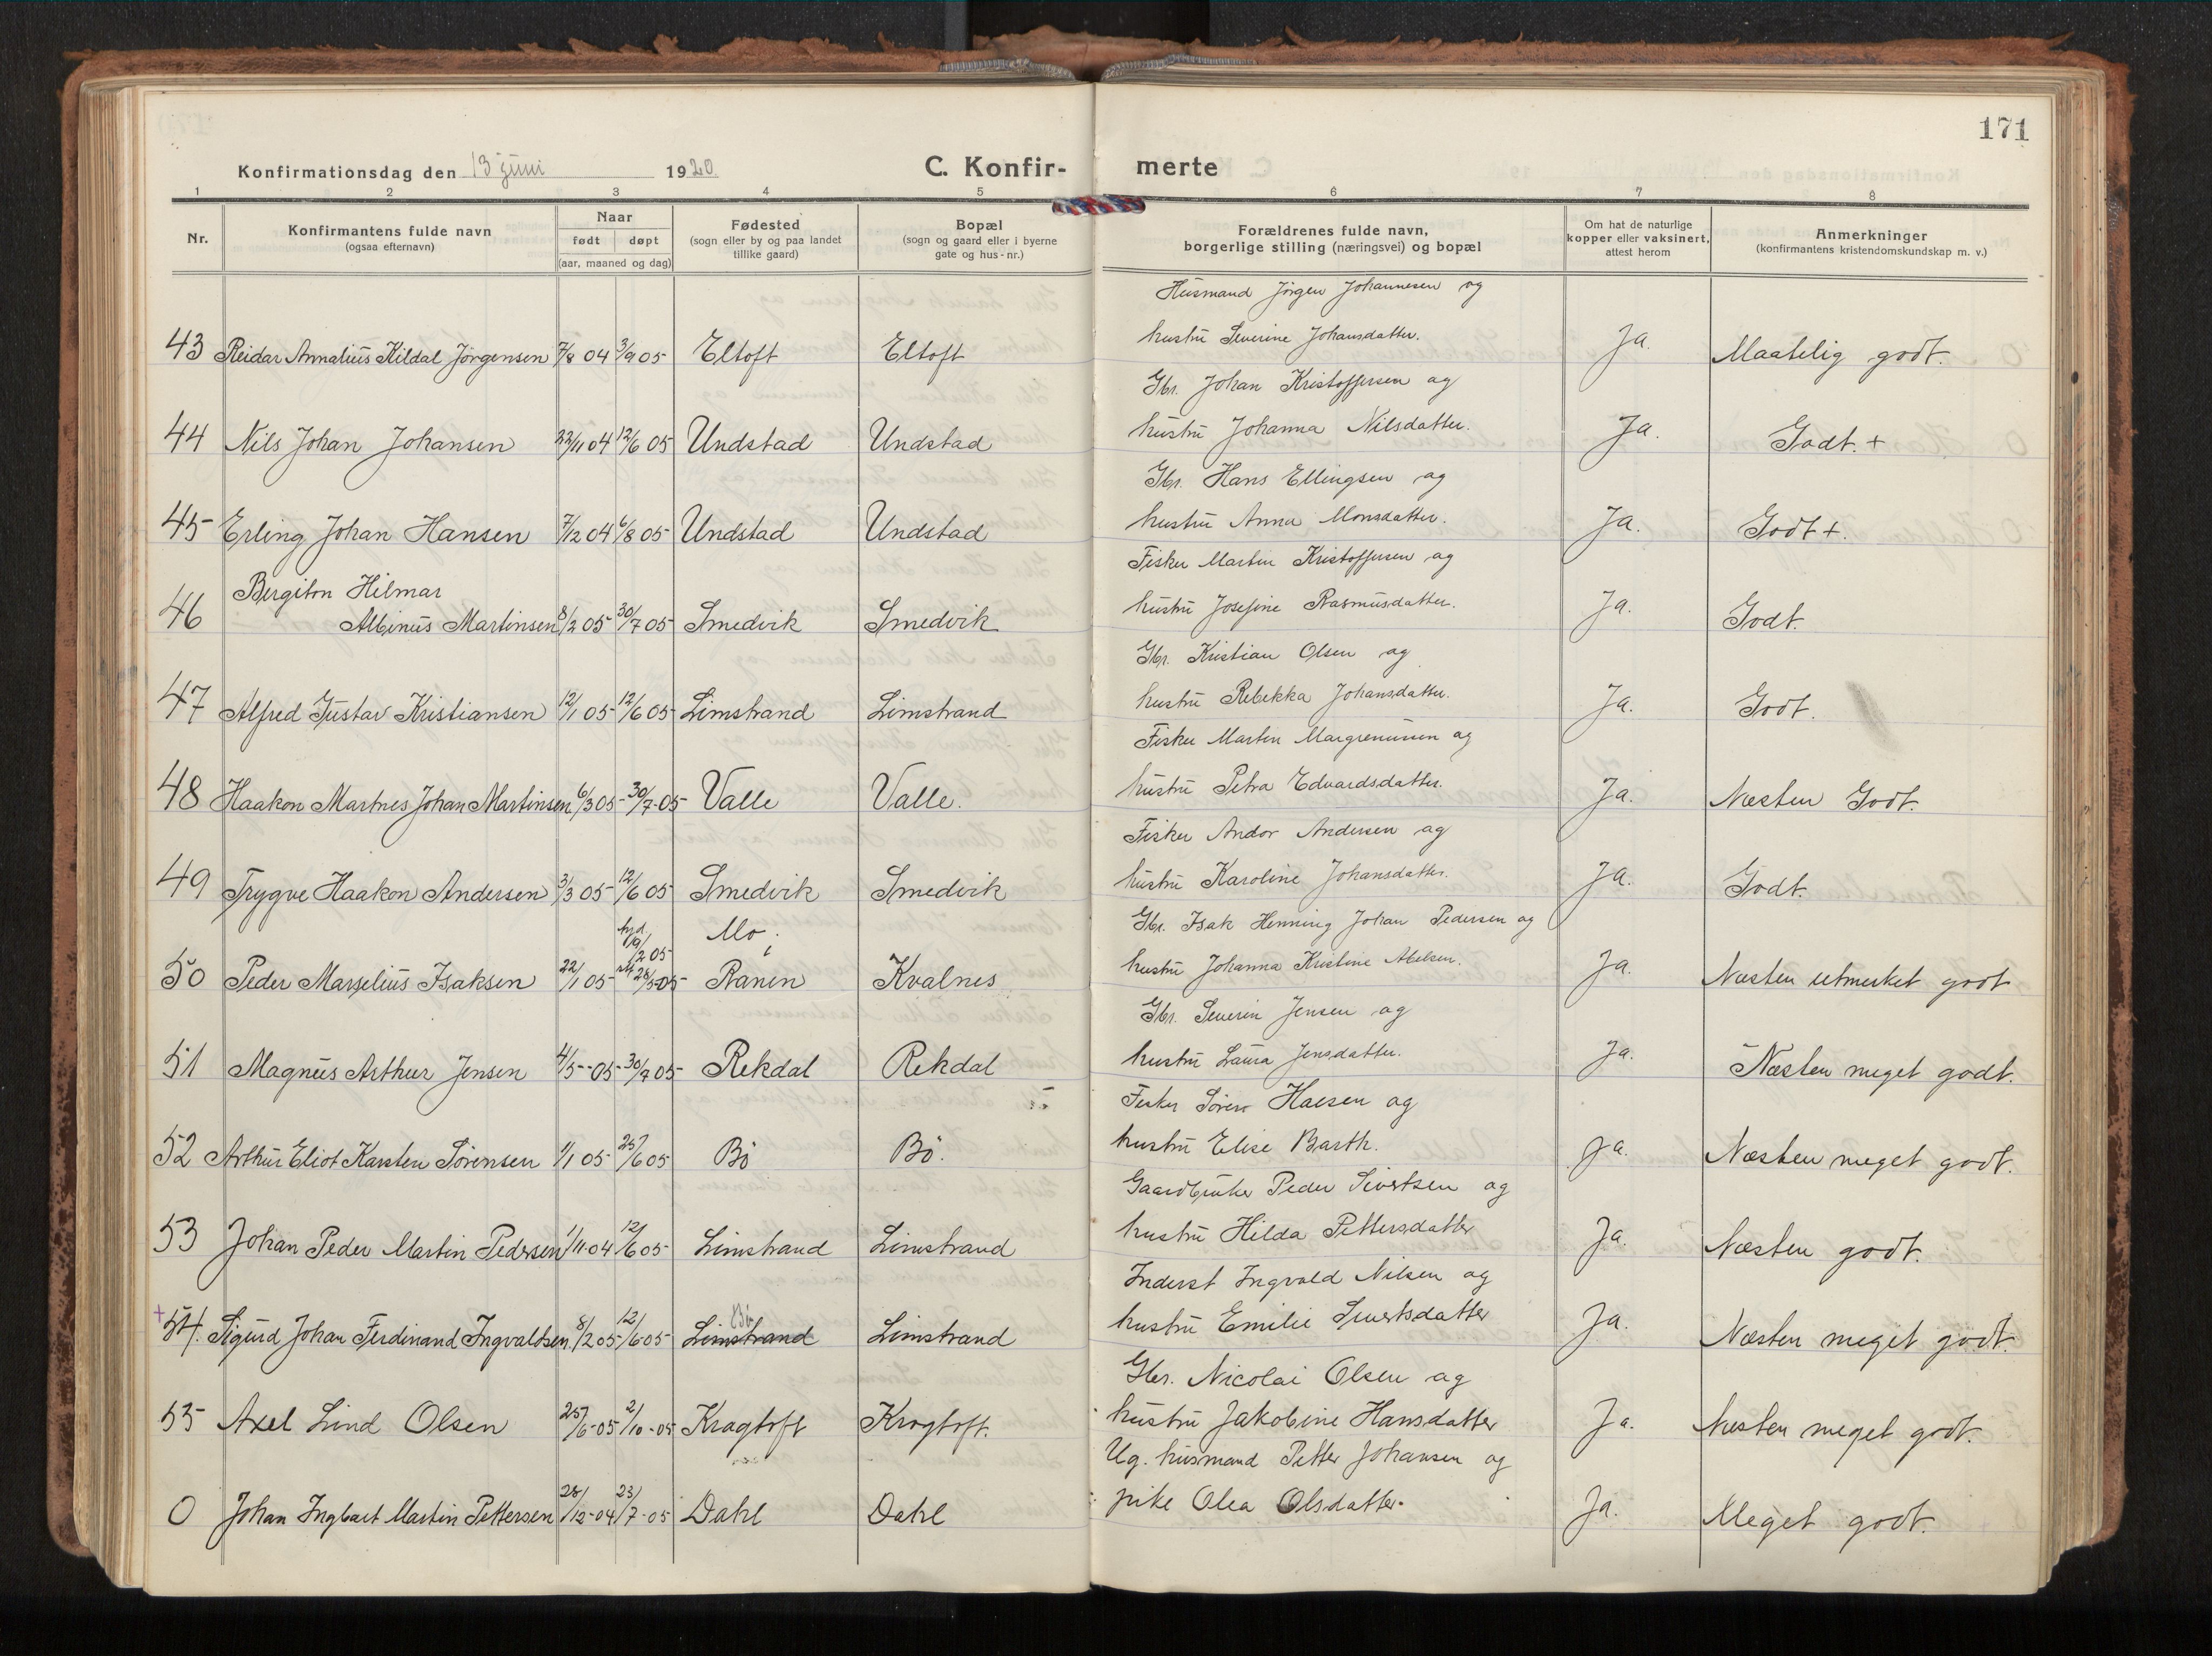 171
Konfirmationsdag den 13 juni 1920. C. Konfir- merte
1 2 3 4 5 6 7 8
Nr.
Konfirmantens fulde navn
(ogsaa efternavn)
Naar
født døpt
(aar, maaned og dag)
Fødested
(sogn eller by og paa landet
tillike gaard)
Bopæl
(sogn og gaard eller i byerne
gate og hus-nr.)
Forældrenes fulde navn,
borgerlige stilling (næringsvei) og bopæl
Om hat de naturlige
kopper eller vaksinert,
attest herom
Anmerkninger
(konfirmantens kristendomskundskap m. v.)
Husmand Jörgen Johannesen og
43 Reidar Annalius Kildal Jörgensen 7/8 04 3/9 05 Eltoft Eltoft hustru Severine Johansdatter. Ja. Maatelig godt.
Gbr. Johan Kristoffersen og
44 Nils Johan Johansen 22/11 04 12/6 05 Undstad Undstad hustru Johanna Nilsdatter. Ja. Godt. +
Gbr. Hans Ellingsen og
45 Erling Johan Hansen 7/12 04 6/8 05 Undstad Undstad hustru Anna Monsdatter. Ja. Godt +.
Fisker Martin Kristoffersen og
Bergiton Hilmar
46 Albinus Martinsen 8/2 05 30/7 05 Smedvik Smedvik hustru Josefine Rasmusdatter. Ja. Godt.
Gbr. Kristian Olsen og
47 Alfred Gustav Kristiansen 12/1 05 12/6 05 Limstrand Limstrand hustru Rebekka Johansdatter. Ja. Godt.
Fisker Martin og
48 Haakon Martnes Johan Martinsen 6/3 05 30/7-05 Valle Valle. hustru Petra Edvardsdatter. Ja. Næsten Godt.
Fisker Andor Andersen og
49 Trygve Haakon Andersen 3/3 05 12/6 05 Smedvik Smedvik hustru Karoline Johansdatter. Ja. Godt.
Gbr. Isak Henning Johan Pedersen og
hjd. 19/2 05 Mo i
50 Peder Marselius Isaksen 22/1 05 28/5-05 Ranen Kvalnes hustru Johanna Kristine Abelsen. Ja. Næsten utmerket godt
Gbr. Severin Jensen og
51 Magnus Arthur Jensen 4/5-05 30/7 05 Rekdal Rekdal hustru Laura Jensdatter. Ja. Næsten meget godt.
Fisker Sören og
52 Arthur Eliot Karsten Sörensen 1/1 05 25/6 05 Bö Bö. hustru Elise Barth. Ja. Næsten meget godt.
Gaardbruker Peder Sivertsen og
53 Johan Peder Martin Pedersen 1/11-04 12/6 05 Limstrand Limstrand hustru Hilda Pettersdatter Ja. Næsten godt.
Inderst Ingvald Nilsen og
Bö
+ 54. Sigurd Johan Ferdinand Ingvaldsen 8/2 05 12/6-05 Limstrand Limstrand hustru Emilie Sivertsdatter Ja. Næsten meget godt.
Gbr. Nicolai Olsen og
55 Axel Lind Olsen 25/6-05 2/10-05 Kragtoft Kragtoft. hustru Jakobine Hansdatter Ja. Næsten meget godt.
Ug. husmand Petter Johansen og
0 Johan Ingbart Martin Pettersen 28/12-04 23/7-05 Dahl Dahl pike Olea Olsdatter. Ja. Meget godt.